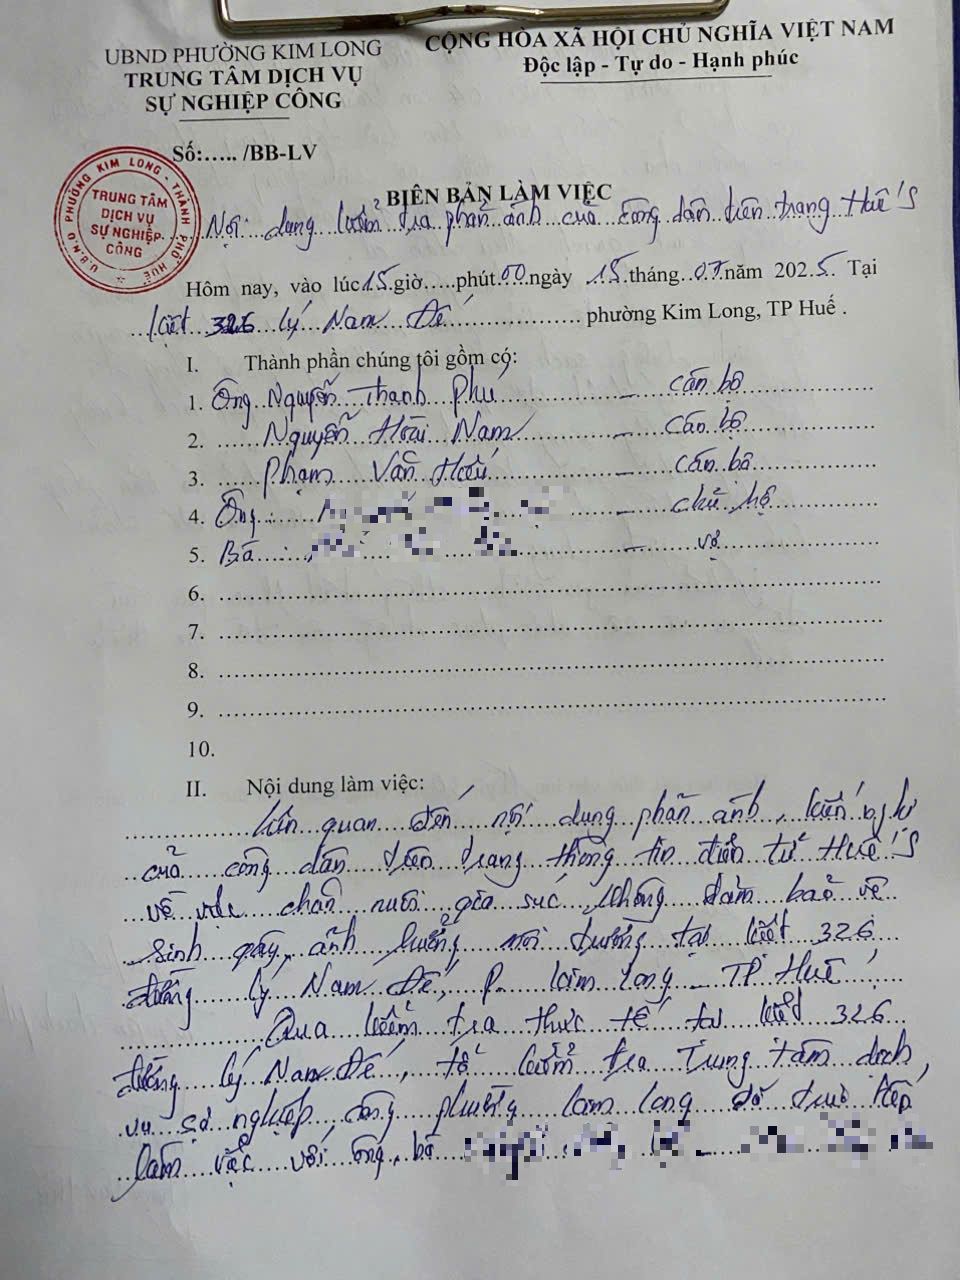 UBND PHƯỜNG KIM LONG
TRUNG TÂM DỊCH VỤ
SỰ NGHIỆP CÔNG
CỘNG HÒA XÃ HỘI CHỦ NGHĨA VIỆT NAM
Độc lập - Tự do - Hạnh phúc
Số:..... /BB-LV
U.B.N.D PHƯỜNG KIM LONG - THÀNH PHỐ HUẾ
TRUNG TÂM
DỊCH VỤ
SỰ NGHIỆP
CÔNG
BIÊN BẢN LÀM VIỆC
Nội dung kiểm tra phản ánh của công dân trên trang Huế S
Hôm nay, vào lúc 15 giờ.....phút 00 ngày 15 tháng 07 năm 2025. Tại
kiệt 326 Lý Nam Đế phường Kim Long, TP Huế .
I. Thành phần chúng tôi gồm có:
1. Ông Nguyễn Thanh Phú - cán bộ
2. Nguyễn Hoài Nam - cán bộ
3. Phạm Văn - cán bộ
4. Ông: - chủ hộ
5. Bà : - vợ
6.
7.
8.
9.
10.
II. Nội dung làm việc:
Liên quan đến nội dung phản ánh, kiến nghị
của công dân trên trang thông tin điện tử Huế S
về việc chăn nuôi gia súc không đảm bảo vệ
sinh gây ảnh hưởng môi trường tại kiệt 326
đường Lý Nam Đế, P. Kim Long - TP Huế
Qua kiểm tra thực tế tại kiệt 326
đường Lý Nam Đế, tổ kiểm tra Trung tâm dịch
vụ sự nghiệp công phường Kim Long đã trực tiếp
làm việc với ông, bà